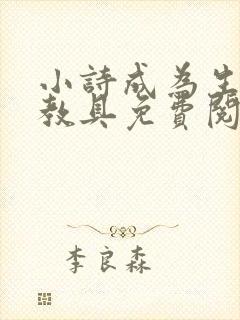 小詩成為生
教具免費閱
李良森